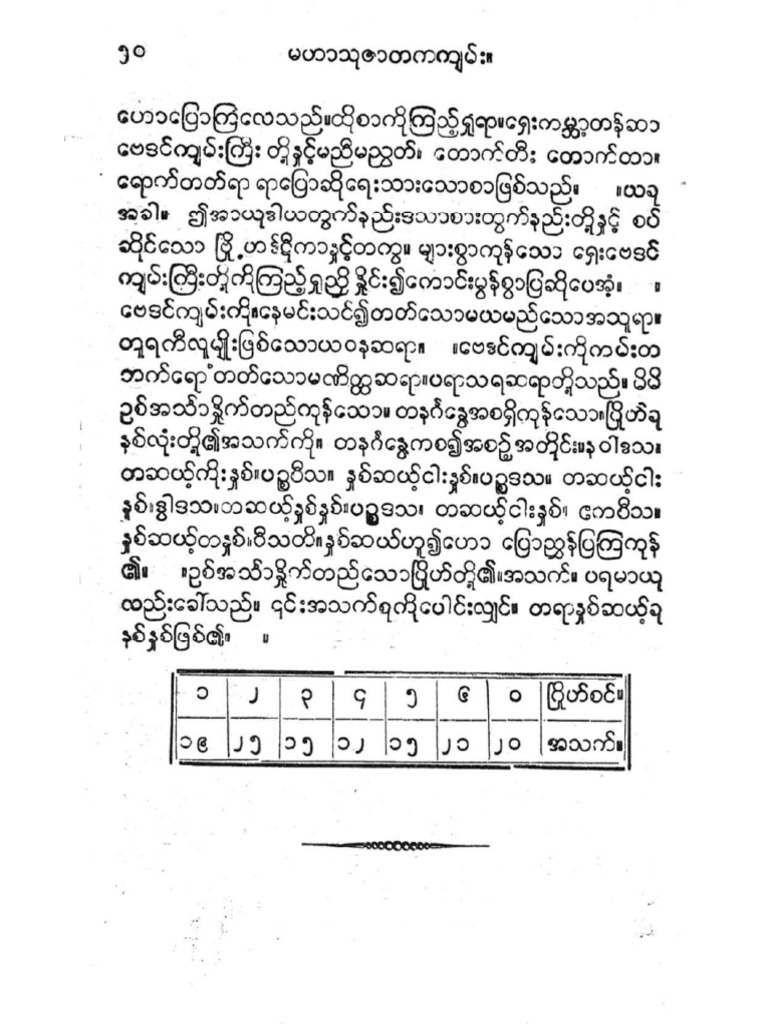 ၅၀ မဟာသုဇာတကကျမ်း။
ဟောပြောကြလေသည်။ထိုစာကိုကြည့်ရှုရာ။ရှေးကမ္ဘာ့တန်ဆာ
ဗေဒင်ကျမ်းကြီး တို့နှင့်မညီမညွတ်။ တောက်တီး တောက်တာ။
ရောက်တတ်ရာ ရာပြောဆိုရေးသားသောစာဖြစ်သည်။ ။ယခု
အခါ။ ဤအာယုဒါယတွက်နည်းဒသာစားတွက်နည်းတို့နှင့် စပ်
ဆိုင်သော ဗြိုဟ်ဋီကာနှင့်တကွ။ များစွာကုန်သော ရှေးဗေဒင်
ကျမ်းကြီးတို့ကိုကြည့်ရှုညှိ နှိုင်း၍ကောင်းမွန်စွာပြဆိုပေအံ့။ ။
ဗေဒင်ကျမ်းကို။နေမင်းသင်၍တတ်သောမယမည်သောအသူရာ။
တူရကီလူမျိုးဖြစ်သောယဝနဆရာ။ ။ဗေဒင်ကျမ်းကိုကမ်းတ
ဘက်ရောက်တတ်သောမဏိတ္ထဆရာ။ပရာသရဆရာတို့သည်။ မိမိ
ဥစ်အင်္သာနှိုက်တည်ကုန်သော။ တနင်္ဂနွေအစရှိကုန်သော။ဗြိုဟ်ခု
နစ်လုံးတို့၏အသက်ကို။ တနင်္ဂနွေကစ၍အစဉ်အတိုင်း။နဝါဒသ။
တဆယ့်ကိုးနှစ်။ပဉ္စဝီသ။ နှစ်ဆယ့်ငါးနှစ်။ပဉ္စဒသ။ တဆယ့်ငါး
နှစ်။ဒွါဒသ။တဆယ့်နှစ်နှစ်။ပဉ္စဒသ၊ တဆယ့်ငါးနှစ်၊ ဧကဝီသ။
နှစ်ဆယ့်တနှစ်။ဝီသတိ။နှစ်ဆယ်ဟူ၍ဟော ပြောညွှန်ပြကြကုန်
၏။ ။ဥစ်အင်္သာနှိုက်တည်သောဗြိုဟ်တို့၏။အသက်။ ပရမာယု
လည်းခေါ်သည်။ ၎င်းအသက်စုကိုပေါင်းလျှင်။ တရာနှစ်ဆယ့်ခု
နစ်နှစ်ဖြစ်၏။ ။
၁ ၂ ၃ ၄ ၅ ၆ ၀ ဗြိုဟ်စင်။
၁၉ ၂၅ ၁၅ ၁၂ ၁၅ ၂၁ ၂၀ အသက်။